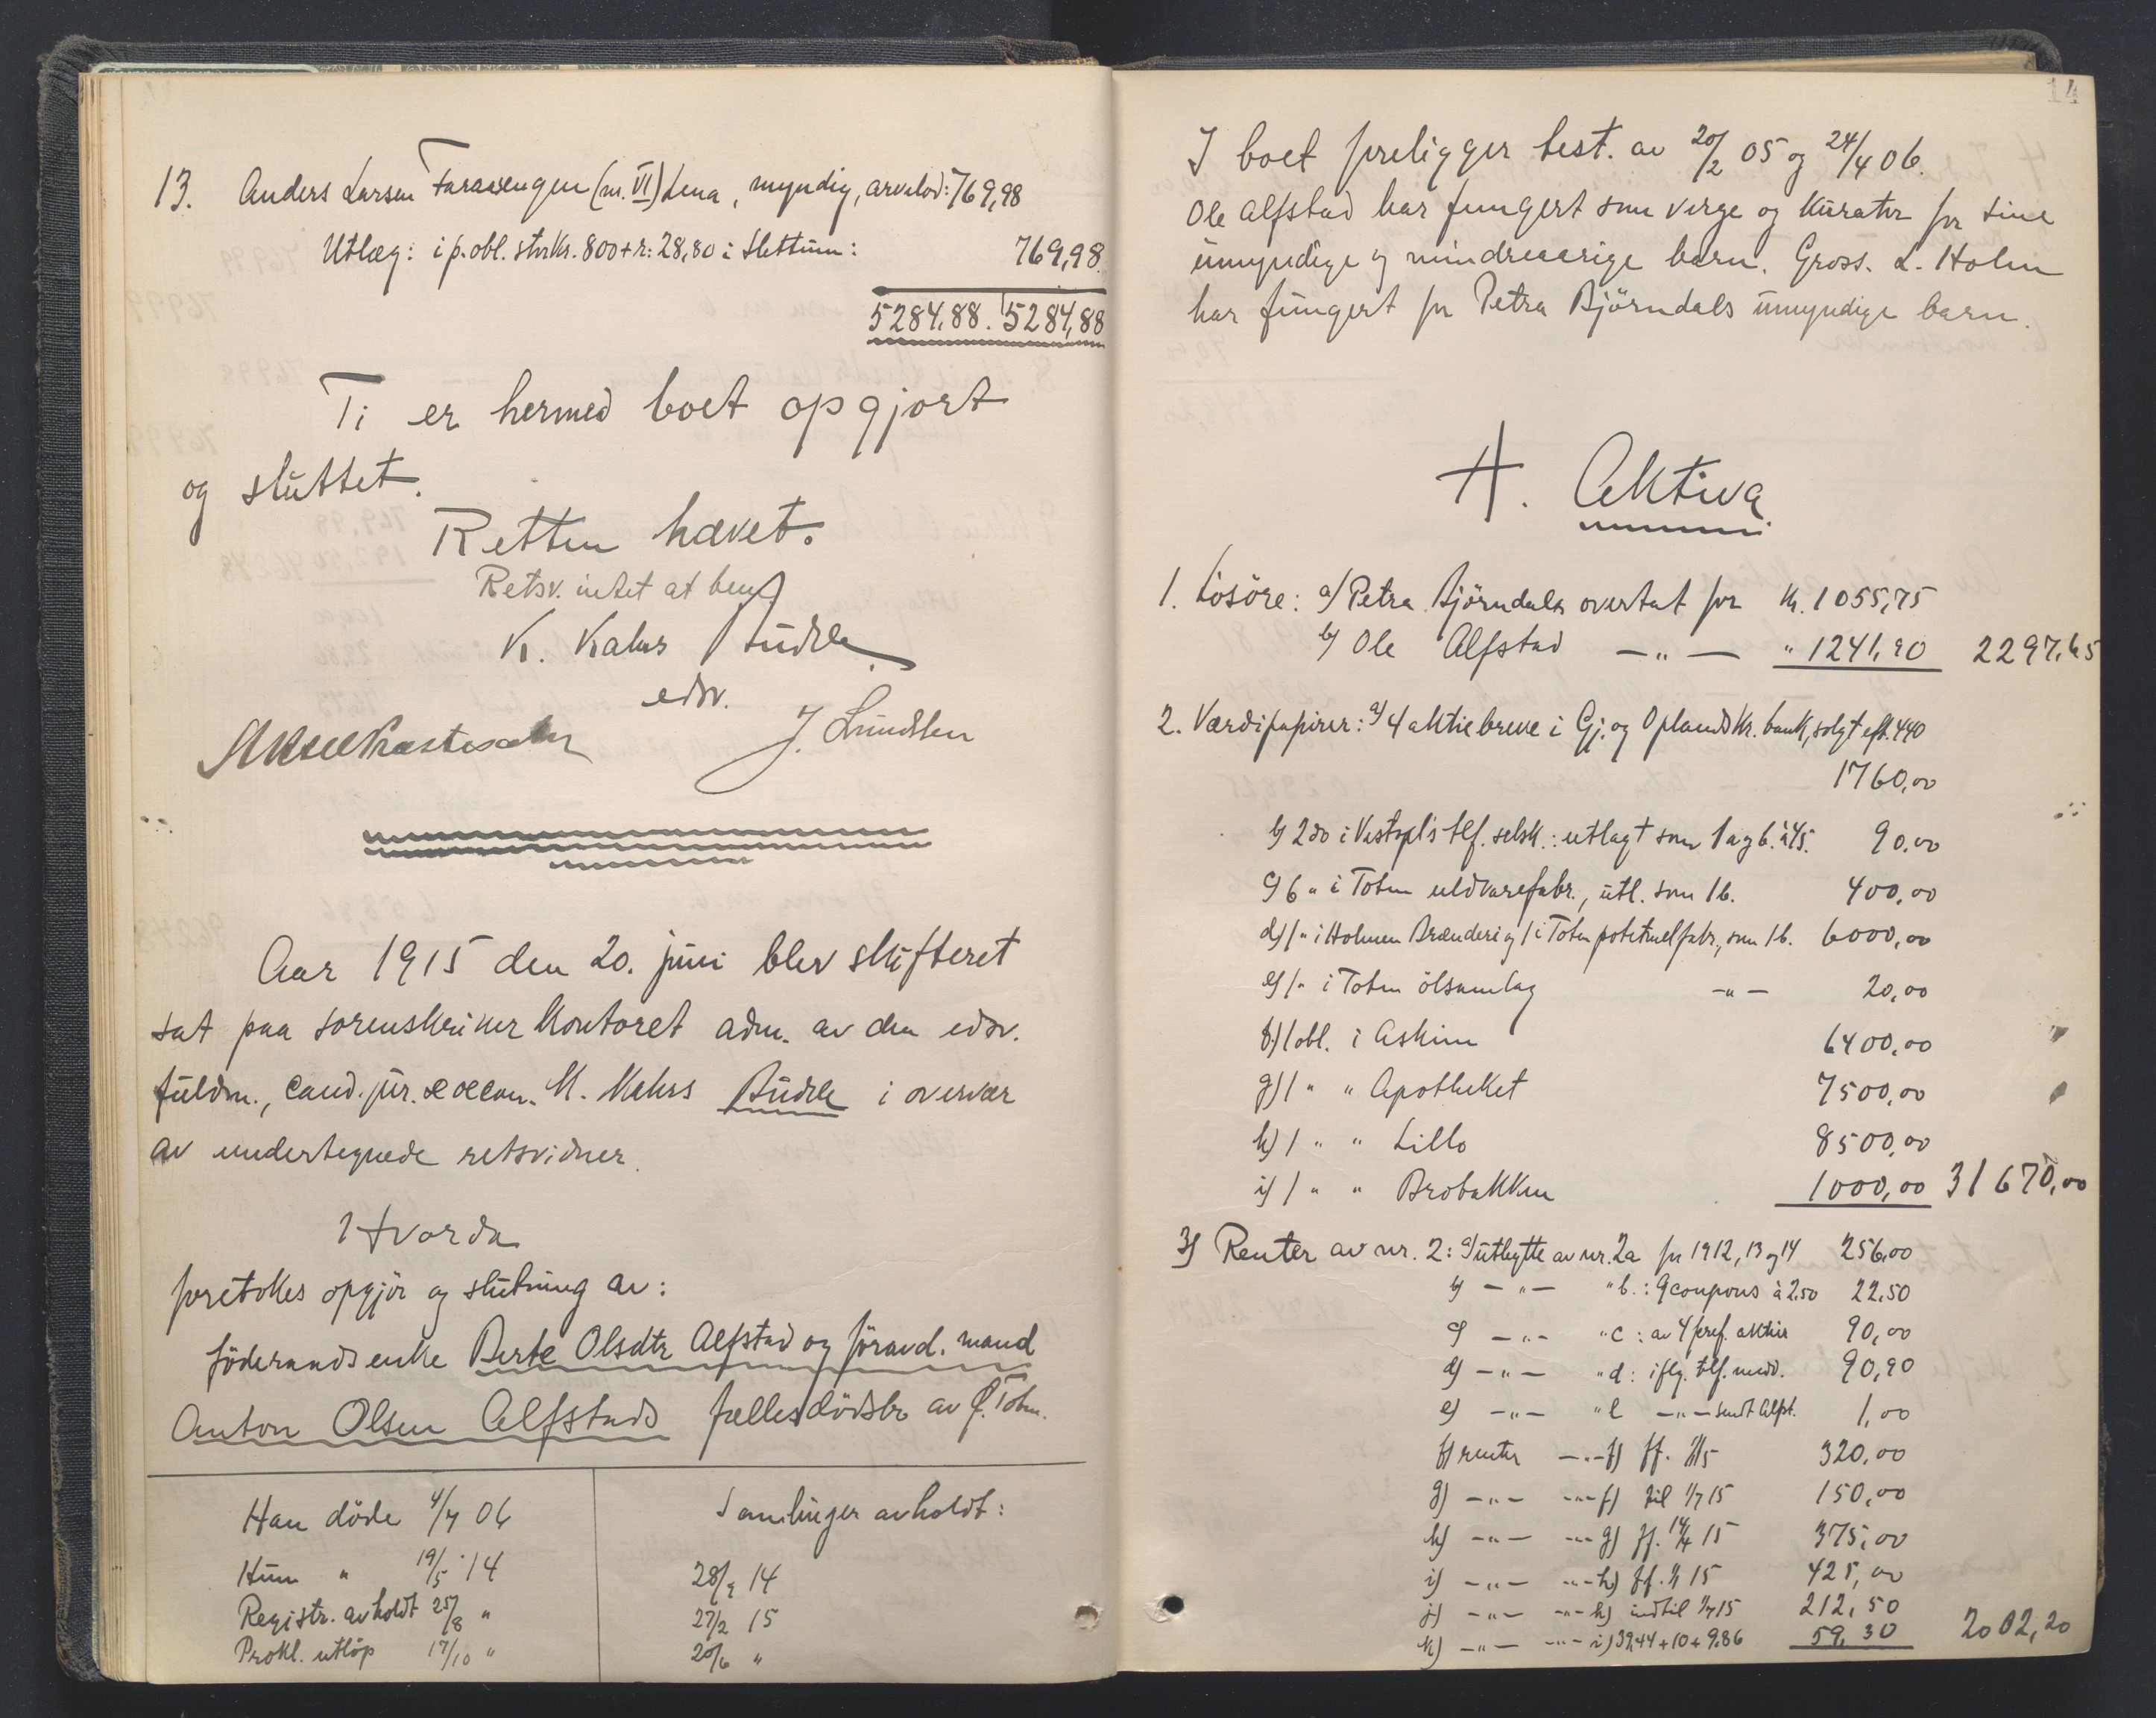 13. Anders Larsen Faraasengen (nr. VI) Lena, myndig, arvelod: 769,98
Utlæg: i p. obl. stor kr. 800 + r: 28,80 i Slettum: 769,98.
5284,88. 5284,88
Ti er hermed boet opgjort
og sluttet.
Retten hævet.
Retsv. intet at bem.
K. Kahrs Budde
edsv.
J. Lundsten
Aar 1915 den 20. juni blev skifteret
sat paa sorenskriver kontoret adm. av den edsv.
fuldm., cand. jur. & oecon. K. Kahrs Budde i overvær
av undertegnede retsvidner.
Hvorda
foretokes opgjör og slutning av:
föderaadsenke Berte Olsdtr Alfstad og föravd. mand
Anton Olsen Alfstads fællesdödsbo av Ø. Toten.
Han döde 4/7 06
Hun " 19/5 14
Registr. avholdt 25/8 "
Prokl. utlöp 17/10 "
Samlinger avholdt:
28/9 14
27/2 15
20/6 "
14
I boet foreligger test. av 20/2 05 og 24/4 06.
Ole Alfstad har fungert som verge og kurator for sine
umyndige og mindreaarige barn. Gross. L. Holm
har fungert for Petra Björndals umyndige barn.
A. Aktiva
1. Lösöre: a) Petra Björndalen overtat for kr. 1055,75
b) Ole Alfstad — " — " 1241,90 2297,65
2. Værdipapirer: a) 4 aktiebreve i Gj. og Oplands kr. bank, solgt eft. 440
1760,00
b) 2 do i Vestopl's tlf. selsk.: utlagt som 1 a og b. à 45. 90,00
c) 6 " i Toten uldvarefabr., utl. som 1 b. 400,00
d) 1 " i Holmen Brænderi og 1 i Toten potetmelfabr., som 1 b. 6000,00
e) 1 " i Toten ölsamlag — " — 20,00
f) 1 obl. i Askim 6400,00
g) 1 " " Apotheket 7500,00
h) 1 " " Lillo 8500,00
i) 1 " " Brobakken 1000,00 31670,00
3) Renter av nr. 2: a) utbytte av nr. 2a for 1912, 13 og 14 256,00
b) — " — " b.: 9 coupons à 2,50 22,50
c) — " — " c: av 4 pref. aktier 90,00
d) — " — " d: iflg. tlf. medd. 90,90
e) — " — " e — " — sendt Alfst. 1,00
f) renter — " — f) ff. 1/1 15 320,00
g) — " — — " — f) til 1/7 15 150,00
h) — " — — " — g) ff. 14/4 15 375,00
i) — " — — " — h) ff. 1/1 15 425,00
j) — " — — " — h) indtil 1/7 15 212,50
k) — " — — " — i) 39,44 + 10 + 9,86 59,30 2002,20